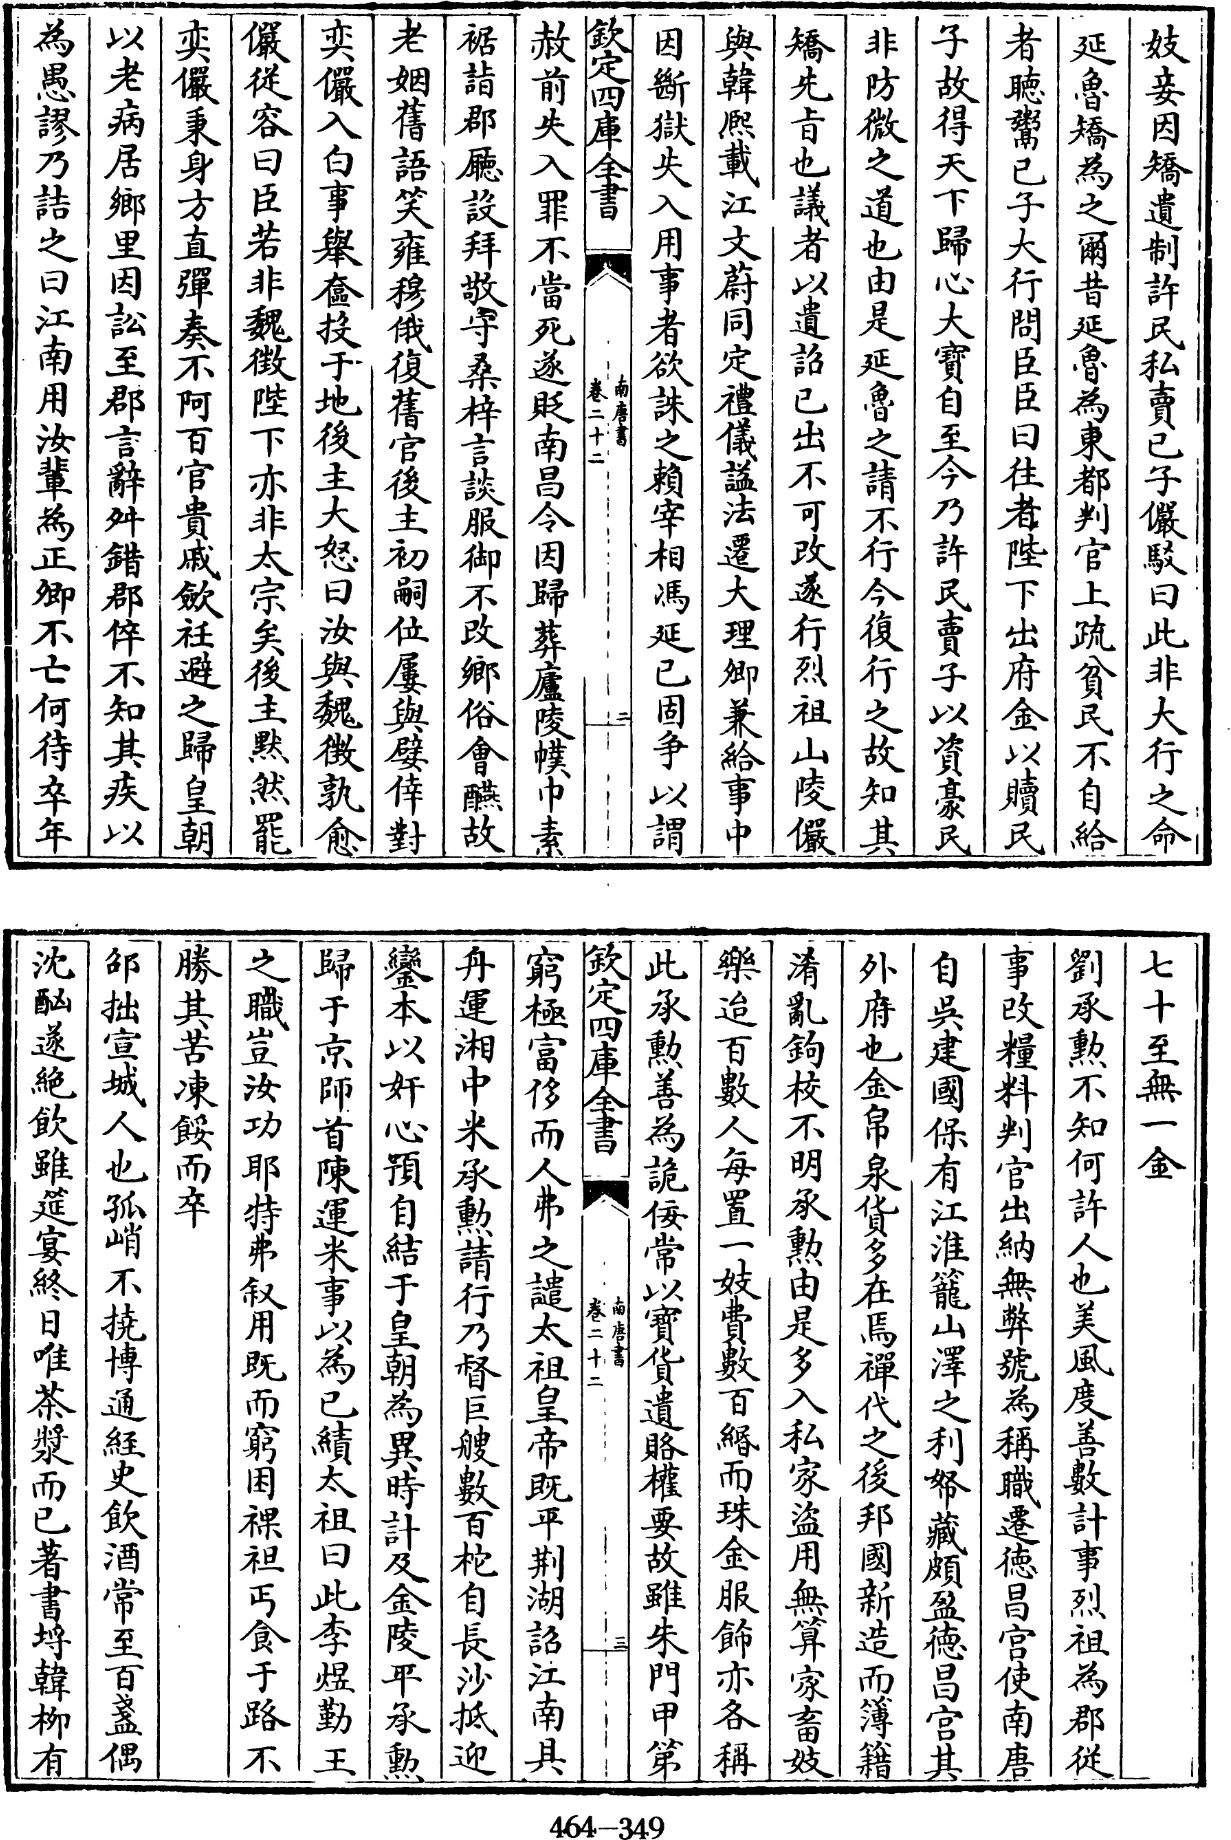 妓妾因矯遺制許民私賣已子儼駁曰此非大行之命
延魯矯為之爾昔延魯為東都判官上疏貧民不自給
者聽鬻已子大行問臣臣曰往者陛下出府金以贖民
子故得天下歸心大寶自至今乃許民賣子以資豪民
非防微之道也由是延魯之請不行今復行之故知其
矯先旨也議者以遺詔已出不可改遂行烈祖山陵儼
與韓熙載江文蔚同定禮儀諡法遷大理卿兼給事中
因斷獄失入用事者欲誅之賴宰相馮延已固爭以謂
欽定四庫全書
南唐書
卷二十二
二
赦前失入罪不當死遂貶南昌令因歸葬廬陵幞巾素
裾詣郡廳設拜敬守桑梓言談服御不改鄉俗會醼故
老姻舊語笑雍穆俄復舊官後主初嗣位屢與嬖倖對
奕儼入白事舉奩投于地後主大怒曰汝與魏徵孰愈
儼從容曰臣若非魏徵陛下亦非太宗矣後主默然罷
奕儼秉身方直彈奏不阿百官貴戚歛衽避之歸皇朝
以老病居鄉里因訟至郡言辭舛錯郡倅不知其疾以
為愚謬乃詰之曰江南用汝輩為正卿不亡何待卒年
七十至無一金
劉承勲不知何許人也美風度善數計事烈祖為郡從
事改糧料判官出納無弊號為稱職遷德昌宮使南唐
自吳建國保有江淮籠山澤之利帑藏頗盈德昌宮其
外府也金帛泉貨多在焉禪代之後邦國新造而簿籍
淆亂鉤校不明承勲由是多入私家盜用無算家畜妓
樂迨百數人每置一妓費數百緡而珠金服飾亦各稱
此承勲善為詭佞常以寶貨遺賂權要故雖朱門甲第
欽定四庫全書
南唐書
卷二十二
三
窮極富侈而人弗之譴太祖皇帝既平荆湖詔江南具
舟運湘中米承勲請行乃督巨艘數百柁自長沙抵迎
鑾本以奸心預自結于皇朝為異時計及金陵平承勲
歸于京師首陳運米事以為已績太祖曰此李煜勤王
之職豈汝功耶特弗叙用既而窮困裸袒丐食于路不
勝其苦凍餒而卒
邵拙宣城人也孤峭不撓博通經史飲酒常至百盞偶
沈酗遂絶飲雖筵宴終日唯茶漿而已著書埒韓柳有
464-349